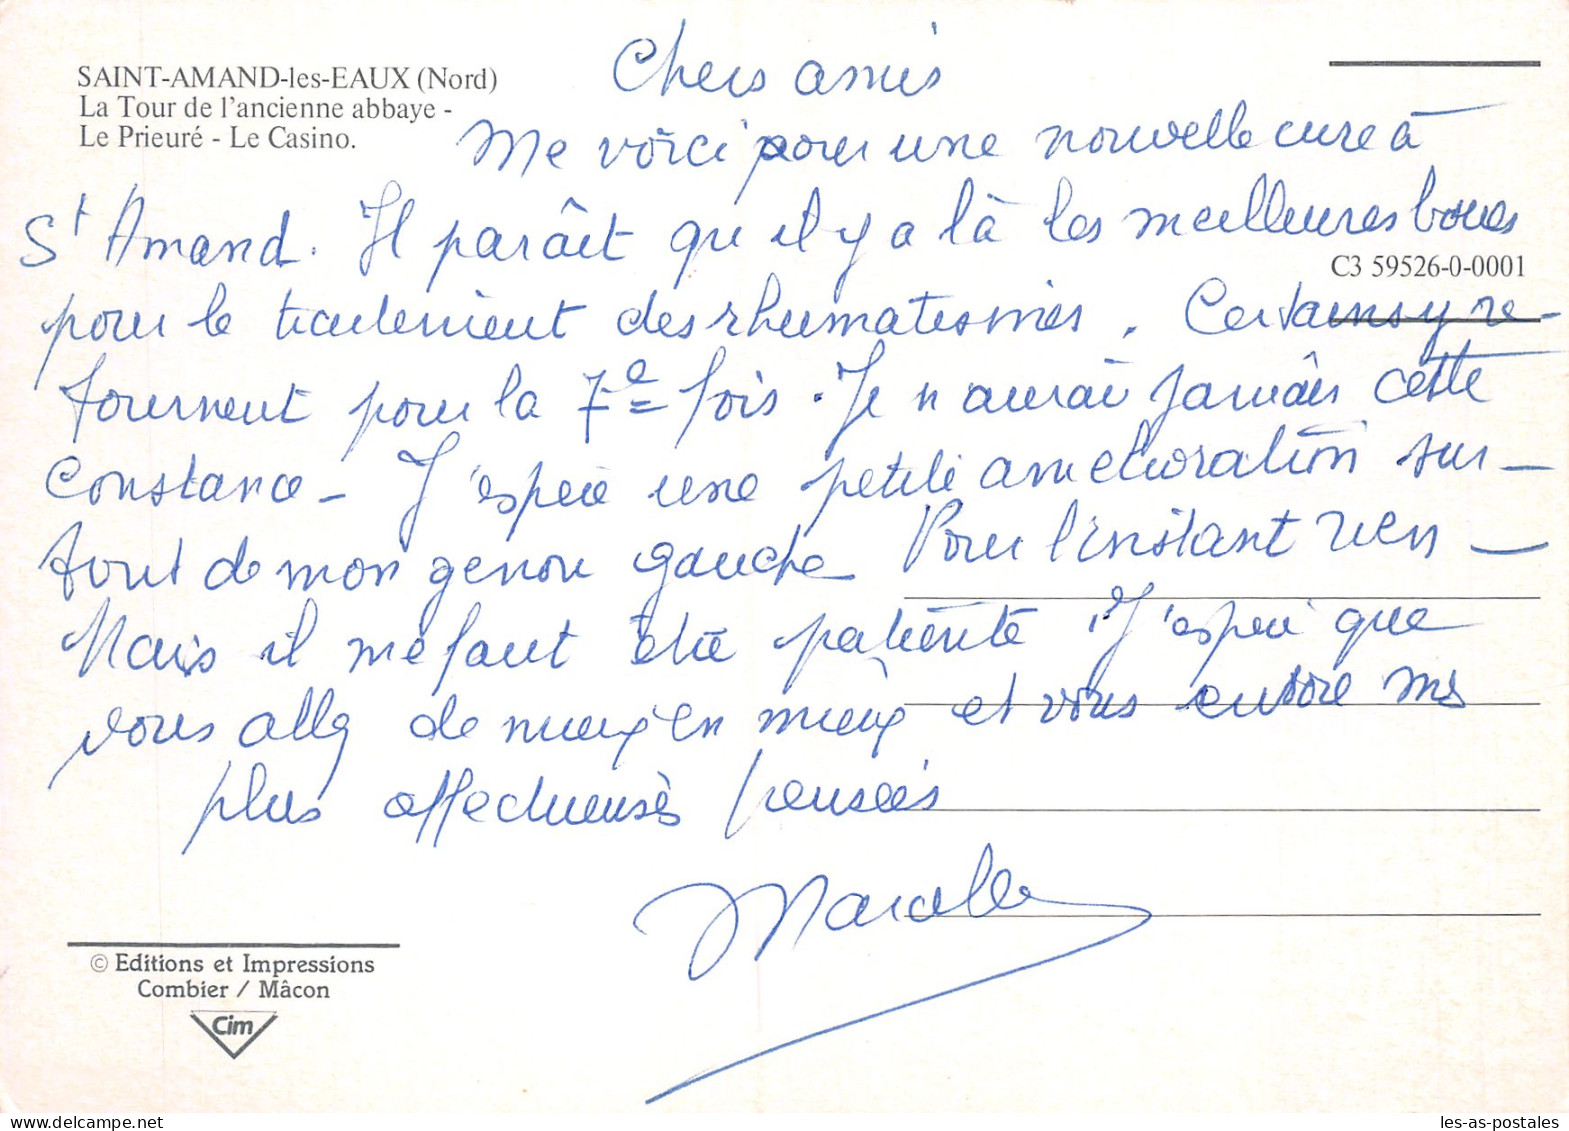 SAINT-AMAND-les-EAUX (Nord)
La Tour de l'ancienne abbaye -
Le Prieuré - Le Casino.
Chers amis
Me voici pour une nouvelle cure à
St Amand. Il paraît qu'il y a là les meilleures boues
C3 59526-0-0001
pour le traitement des rhumatismes. Certains y re-
tournent pour la 7e fois. Je n'aurai jamais cette
constance - J'espère une petite amélioration sur-
tout de mon genou gauche Pour l'instant rien -
Mais il me faut être patiente. J'espère que
vous allez de mieux en mieux et vous envoie mes
plus affectueuses pensées
Marcelle
© Editions et Impressions
Combier / Mâcon
Cim
les-as-postales